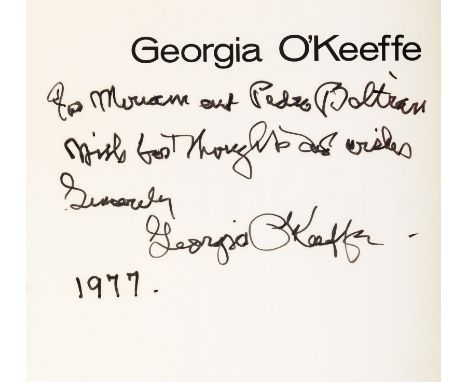 Georgia O'Keeffe
To Miriam and Pedro Beltran
With best thoughts and wishes
Sincerely
Georgia O'Keeffe -
1977.